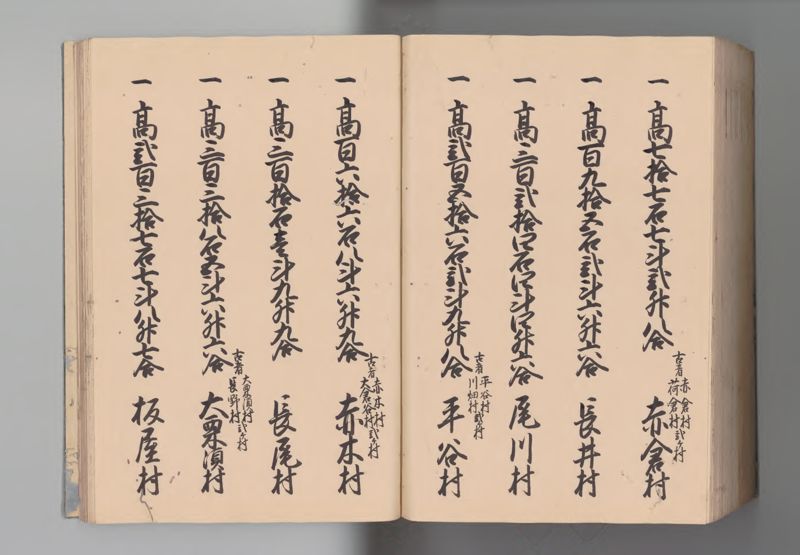 一 高七拾七石七斗弐升八合 古者 赤倉村 荷倉村 弐ヶ村 赤倉村
一 高百九拾五石弐斗六升六合 長井村
一 高三百弐拾四石四斗四升六合 尾川村
一 高弐百五拾六石弐斗九升八合 古者 平谷村 川畑村 弐ヶ村 平谷村
一 高百六拾六石八斗六升九合 古者 赤木村 大倉谷村 弐ヶ村 赤木村
一 高三百拾石壱斗九升九合 長尾村
一 高三百三拾八石五斗六升六合 古者 大栗須村 長野村 弐ヶ村 大栗須村
一 高弐百三拾七石七斗八升七合 板屋村